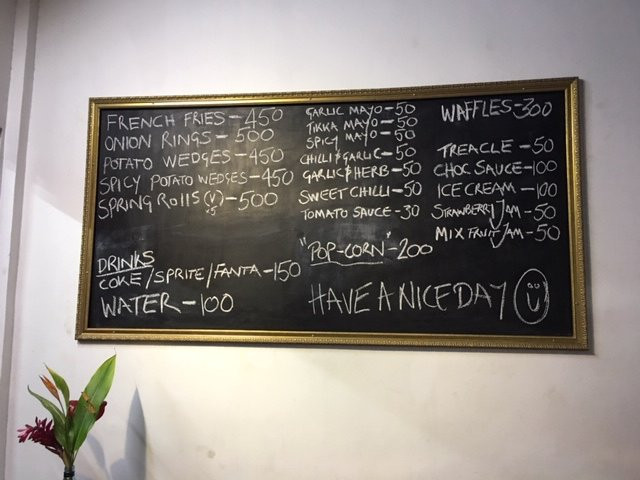 FRENCH FRIES - 450
ONION RINGS - 500
POTATO WEDGES - 450
SPICY POTATO WEDGES - 450
SPRING ROLLS (V) x5 - 500
DRINKS
COKE/SPRITE/FANTA - 150
WATER - 100
GARLIC MAYO - 50
TIKKA MAYO - 50
SPICY MAYO - 50
CHILLI & GARLIC - 50
GARLIC & HERB - 50
SWEET CHILLI - 50
TOMATO SAUCE - 30
"POP-CORN" - 200
WAFFLES - 300
TREACLE - 50
CHOC SAUCE - 100
ICE CREAM - 100
STRAWBERRY JAM - 50
MIX FRUIT JAM - 50
HAVE A NICE DAY